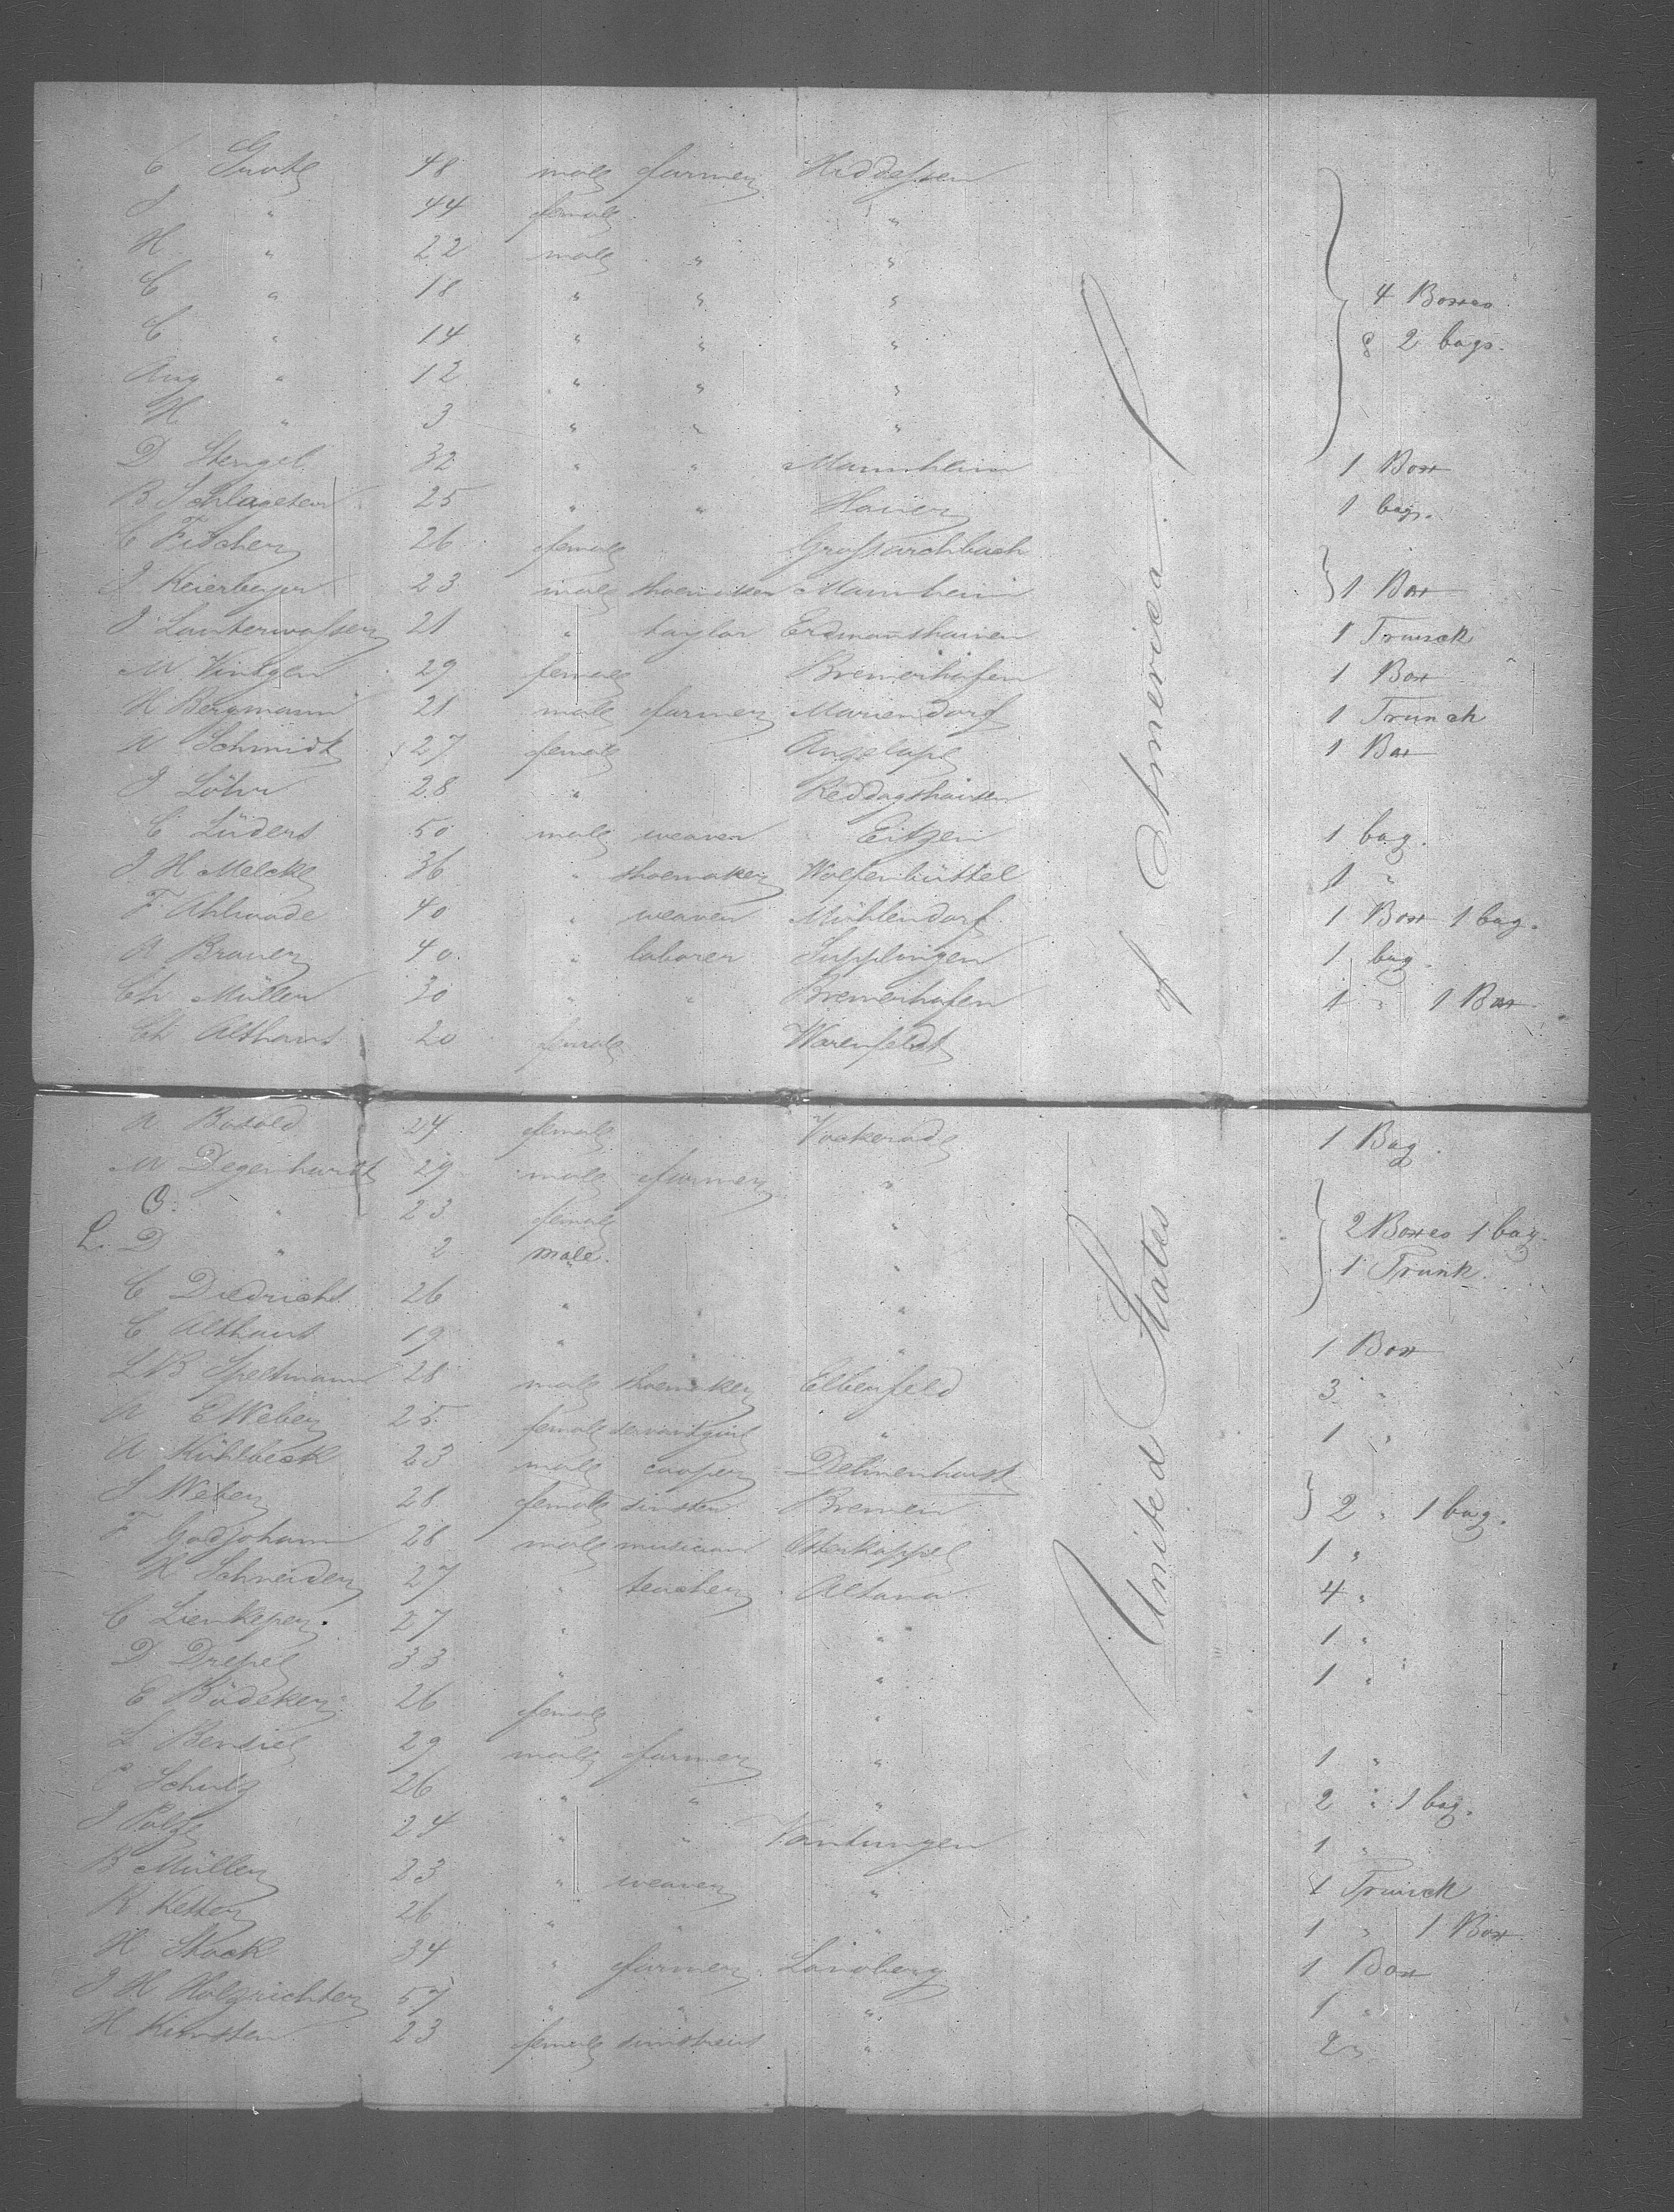 C Grote 48 male farmer Hiddessen
J " 44 female "
H " 22 male " "
C " 18 " " " 4 Boxes
C " 14 " " " & 2 bags.
Aug " 12 " " "
H " 3 " " "
D Stengel 32 " " Mannheim 1 Box
B Schlageter 25 " " Hauer 1 bag.
C Fischer 26 female Grossarchbach
J Keierberger 23 male shoemaker Mannheim 1 Box
J Lauterwasser 21 " taylor Erdmannshausen 1 Trunck
M Vintgen 29 female Bremerhafen 1 Box
H Bergmann 21 male farmer Mariendorf 1 Trunck
W Schmidt 27 female 1 Box
J Löhr 28 " Reddagshausen
C Lüders 50 male weaver Eitzen 1 bag.
J H Melcke 36 " shoemaker Wolfenbüttel 1 "
F Ahlrode 40 " weaver Mühlendorf 1 Box 1 bag.
A Brauer 40. " laborer Supplingen 1 bag.
Ch Müller 30 " " Bremerhafen 1 " 1 Box
Ch Althans 20 female Warenfeldt
A Basold 24 female Vockerode 1 Bag.
M Degenhardt 29 male farmer "
O. " 23 female " 2 Boxes 1 bag.
L. D " 2 male. " 1 Trunk.
C Diedrichs 26 " " "
C Althans 19 " " " 1 Box
L B Speltmann 28 male shoemaker Elberfeld 3 "
A E Weber 25 female servantgirl " 1 "
A Kühlbeck 23 male cooper Delmenhorst
J Weber 28 female Bremen 2 " 1 bag.
F Godjohann 28 male musician Osterkappel 1 "
H Schneider 27 " teacher Altona 4 "
C Lienkeper. 27 " " 1 "
D Dresel 33 " " 1 "
E Bödeker 26 female "
L Bensiel 29 male farmer " 1 "
C Schulz 26 " " " 2 " 1 bag.
J Poltz 24 " " Vantungen 1 "
B Müller 23 " weaver " 1 Trunck
K Ketter 26 " " " 1 " 1 Box
H Stock 34 " farmer Landberg 1 Box
J H Holzrichter 57 " " " 1 "
H Kirnsten 23 female " 2 "
United States of America